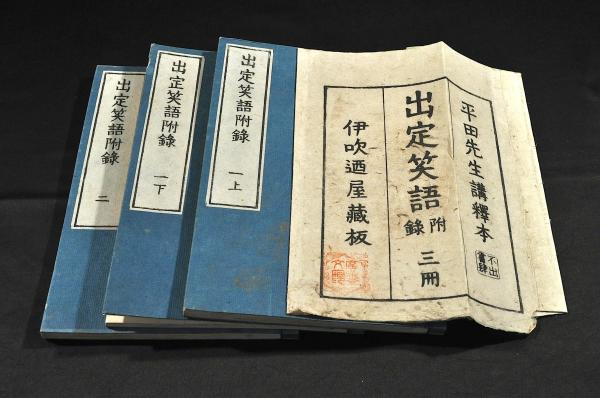 平田先生講釋本
不出
書肆
出定笑語附録
三冊
伊吹廼屋藏板
出定笑語附錄
一上
出定笑語附錄
一下
出定笑語附錄
二